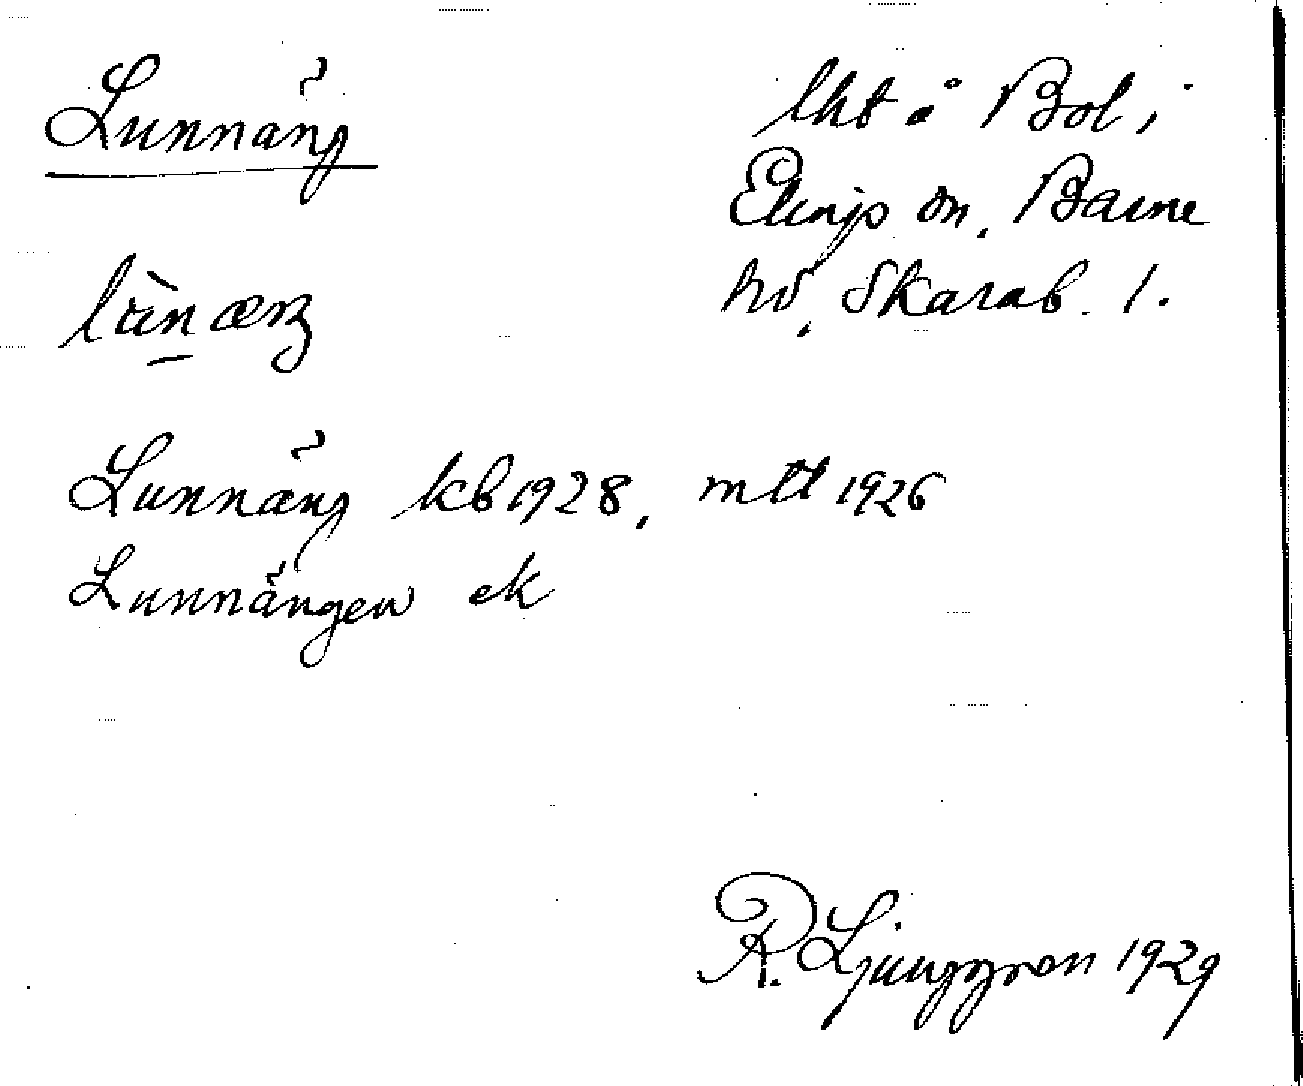 Lunnäng
lht å Bol i
Elings sn, Barne
hd, Skarab. l.
Lunnäng kb 1928, mtl 1926
Lunnängen ek
R. Ljunggren 1929